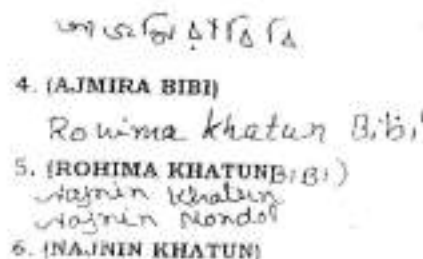 4. (AJMIRA BIBI)
Rohima Khatun Bibi
5. (ROHIMA KHATUN BIBI)
Najnin Khatun
Najnin Mondol
6. (NAJNIN KHATUN)